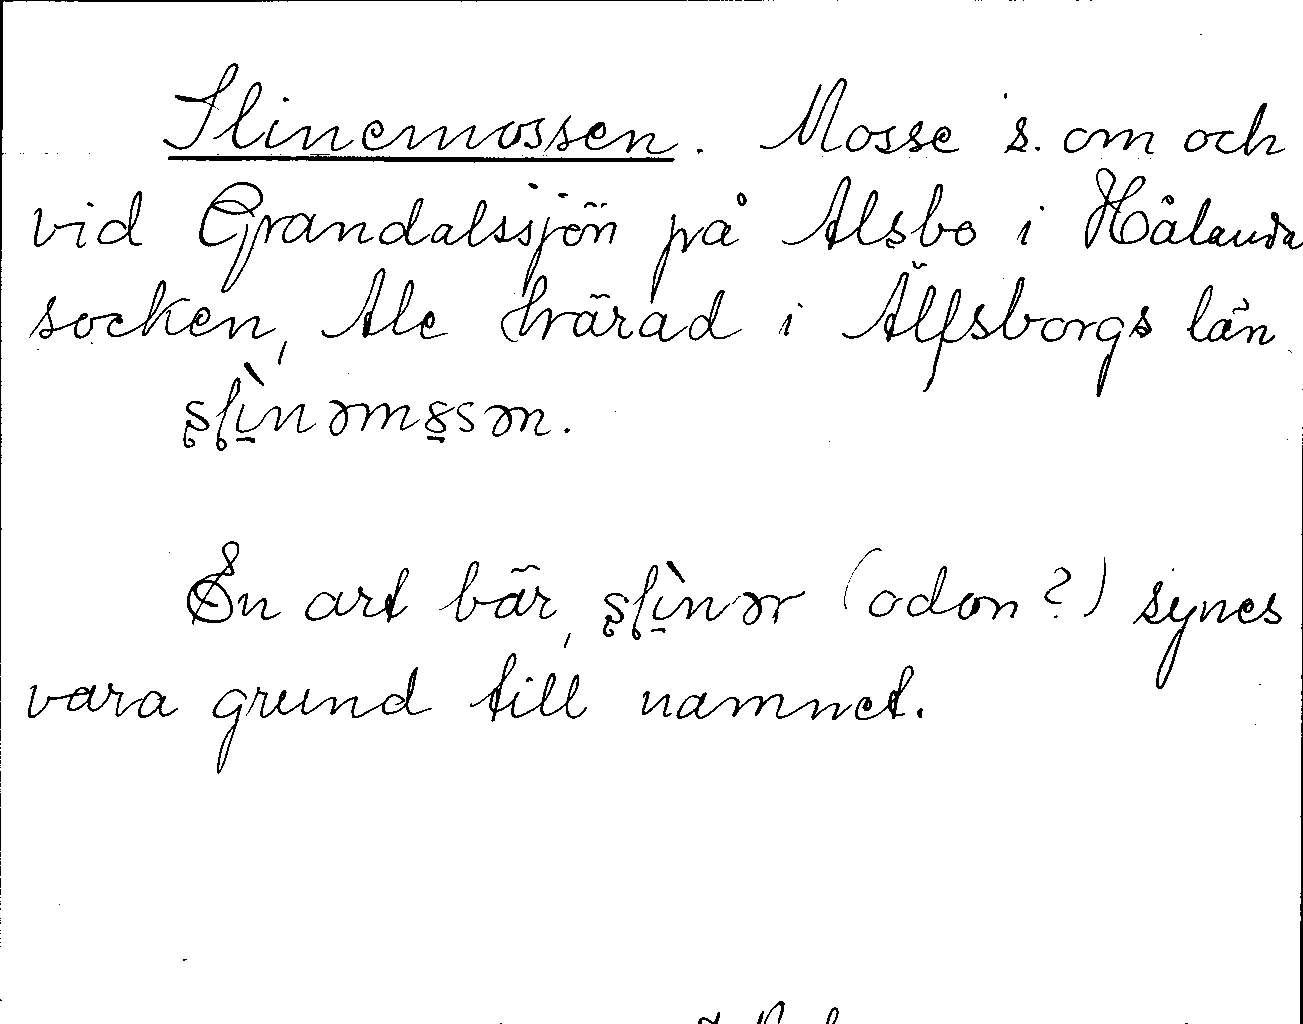 Slinemossen. Mosse s. om och
vid Grandalssjön på Alsbo i Hålanda
socken, Ale härad i Älfsborgs län
En art bär, (odon?) synes
vara grund till namnet.